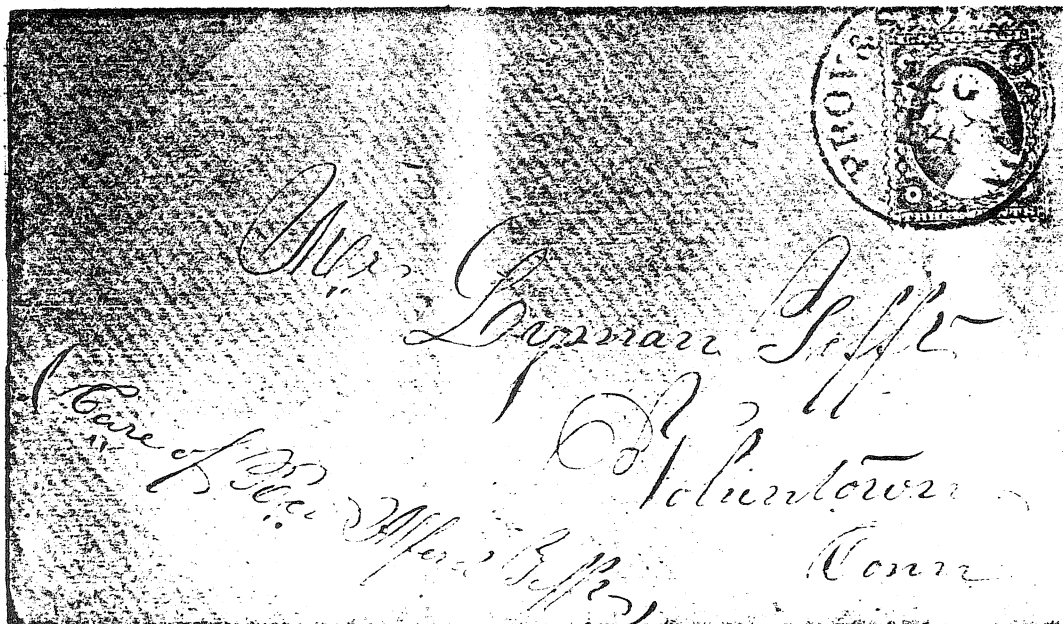 PROV
Mr. Lyman Tefft
Voluntown
Conn
(Care of Alfred Tefft)